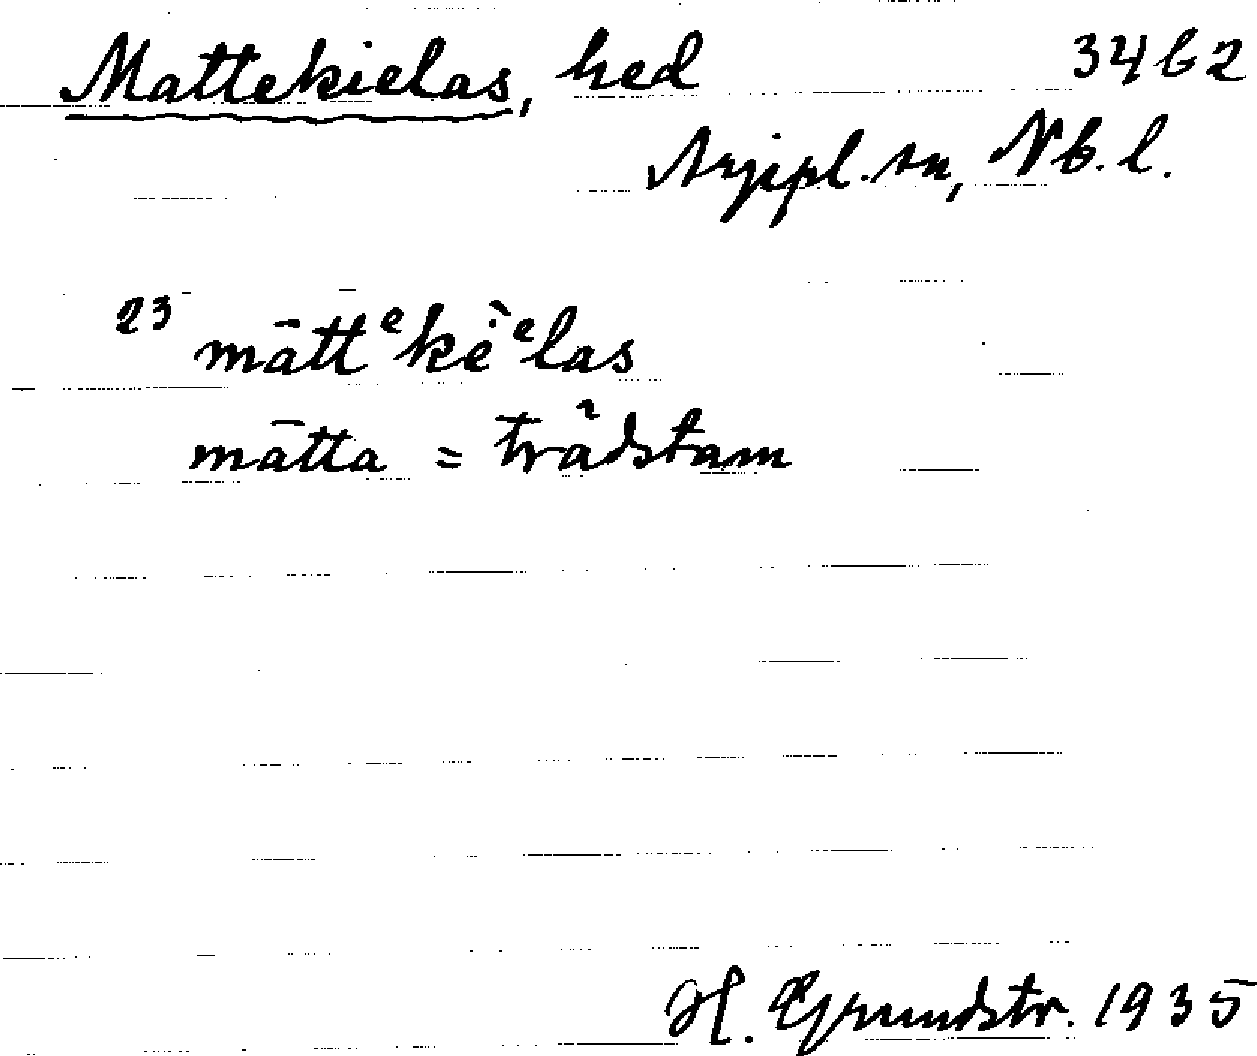 Mattekielas, hed 3462
Arjepl. sn, Nb. l.
23 māttᵉkè̇ᵉlas
mātta = trädstam
H. Grundstr. 1935